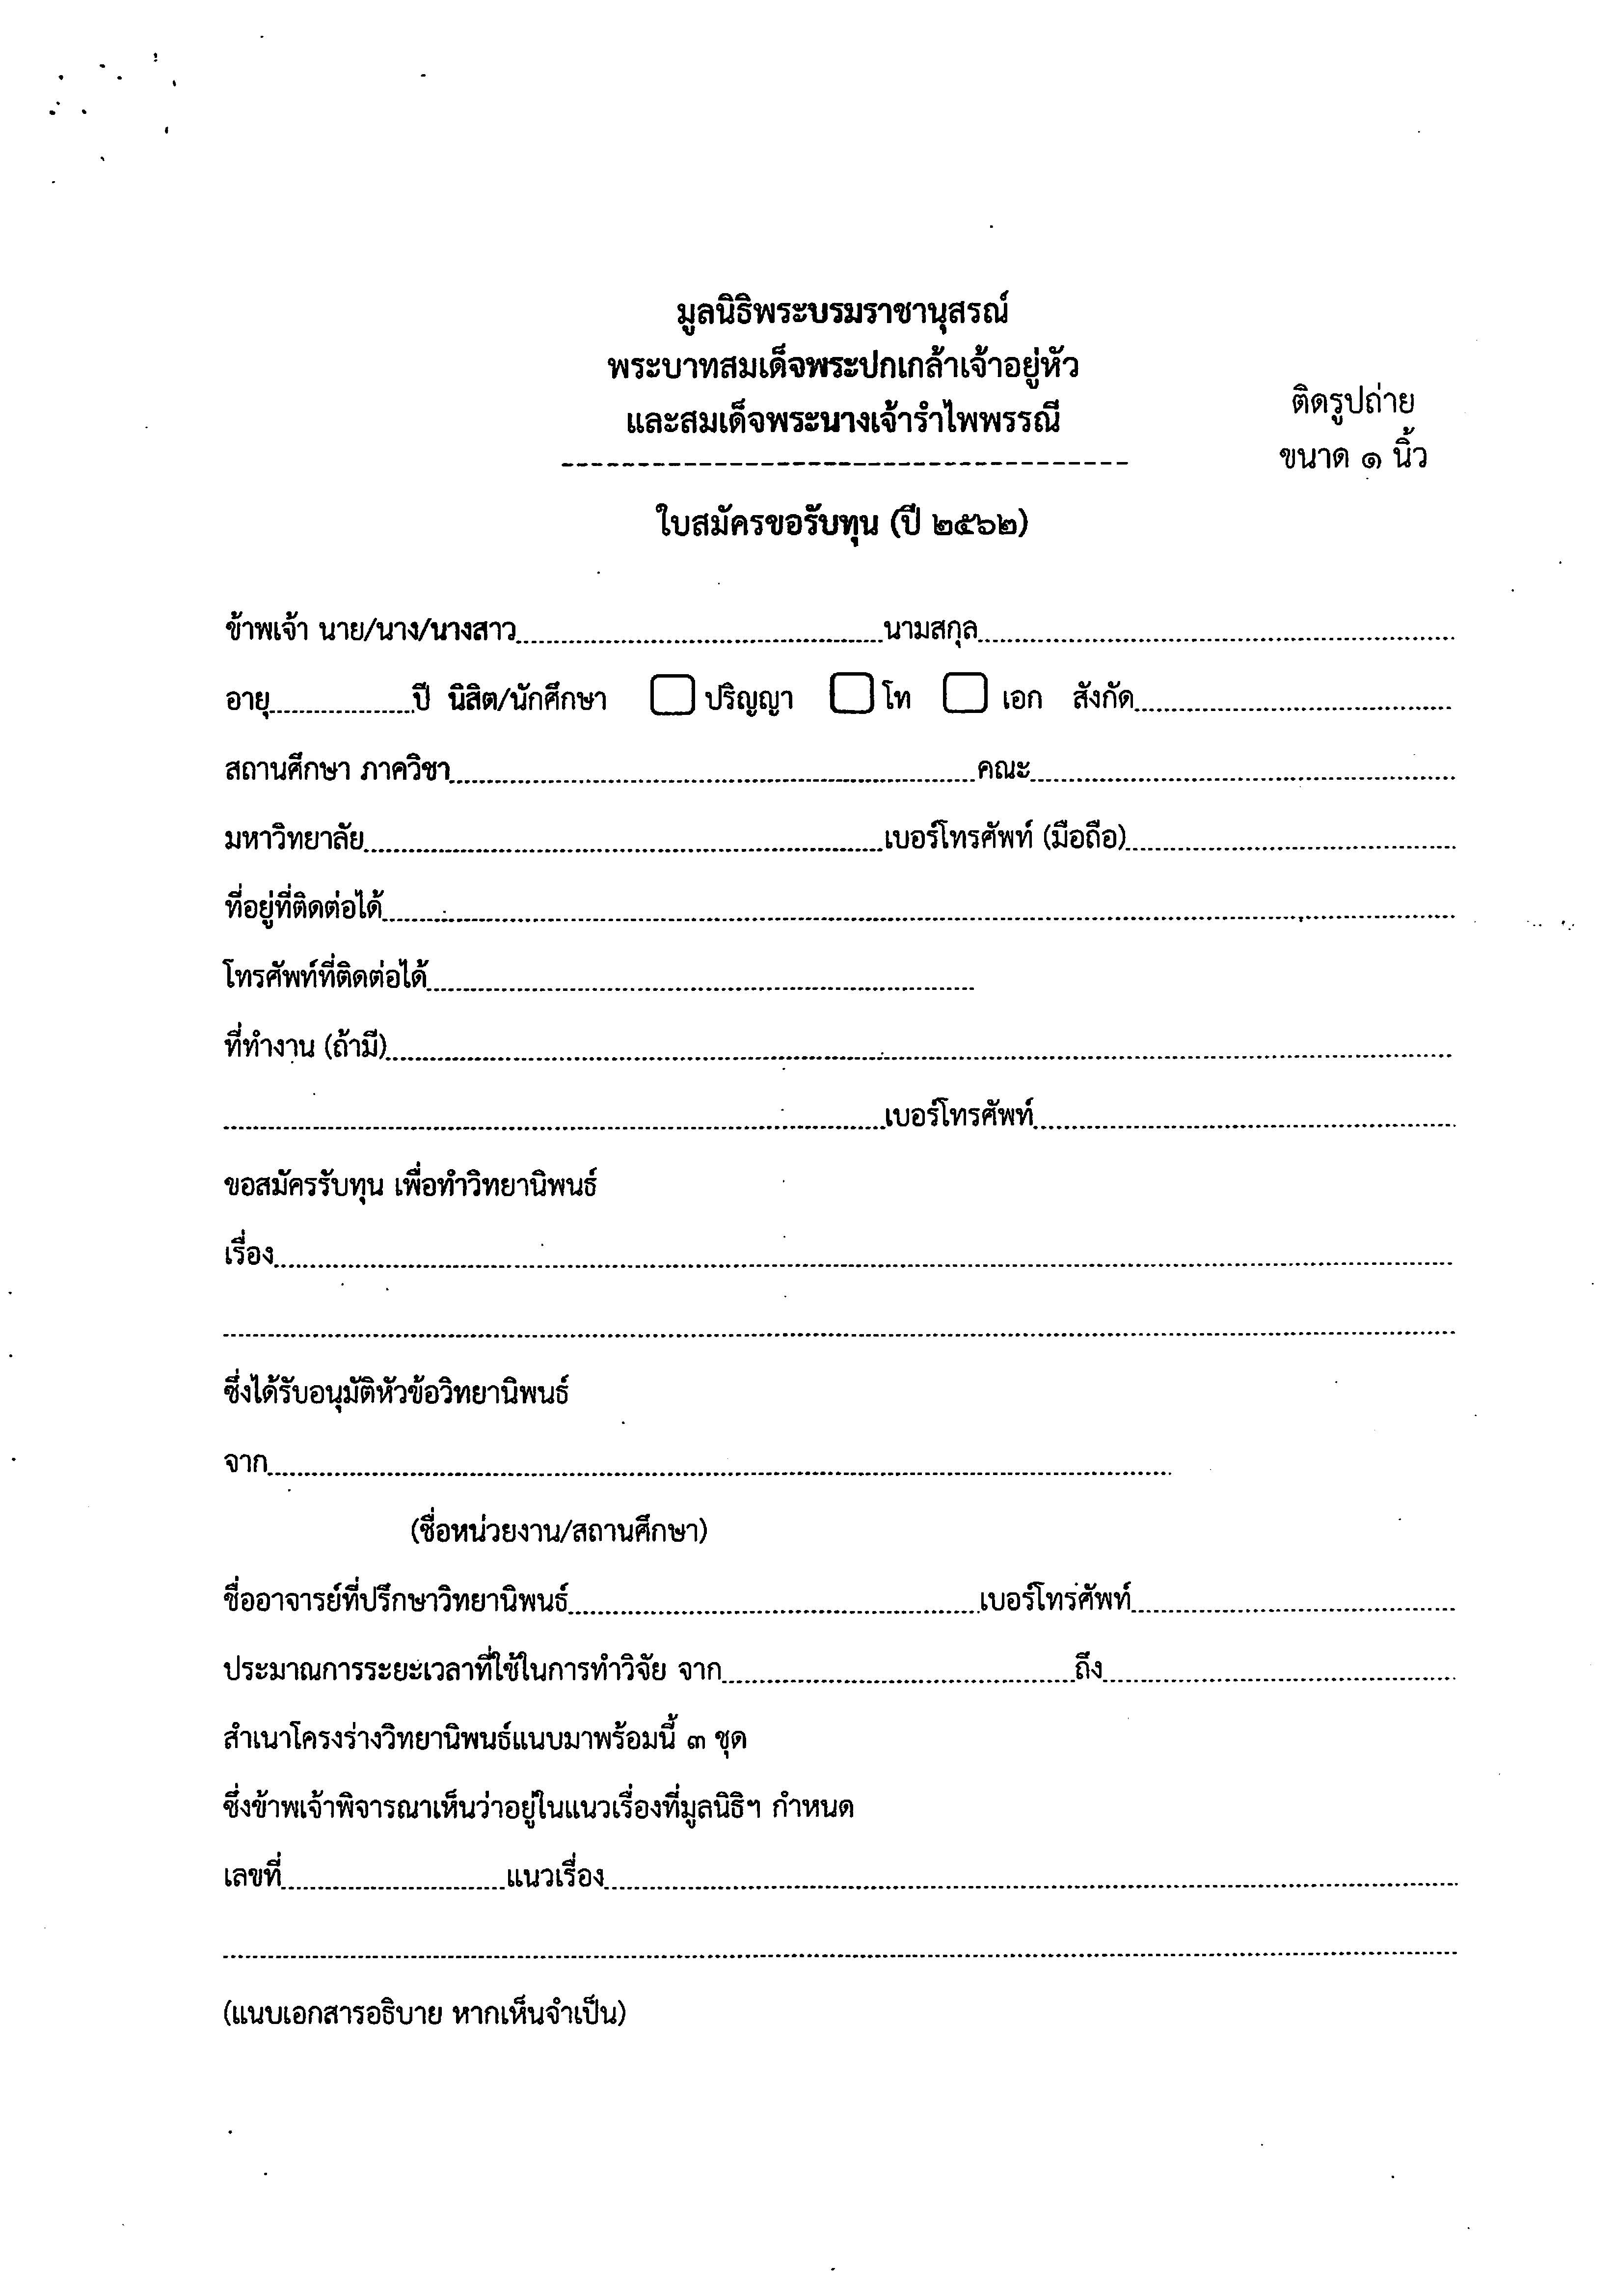 มูลนิธิพระบรมราชานุสรณ์
พระบาทสมเด็จพระปกเกล้าเจ้าอยู่หัว
และสมเด็จพระนางเจ้ารำไพพรรณี
ติดรูปถ่าย
ขนาด ๑ นิ้ว
ใบสมัครขอรับทุน (ปี ๒๕๖๒)
ข้าพเจ้า นาย/นาง/นางสาว..........นามสกุล..........
อายุ..........ปี นิสิต/นักศึกษา ☐ ปริญญา ☐ โท ☐ เอก สังกัด..........
สถานศึกษา ภาควิชา..........คณะ..........
มหาวิทยาลัย..........เบอร์โทรศัพท์ (มือถือ)..........
ที่อยู่ที่ติดต่อได้..........
โทรศัพท์ที่ติดต่อได้..........
ที่ทำงาน (ถ้ามี)..........
..........เบอร์โทรศัพท์..........
ขอสมัครรับทุน เพื่อทำวิทยานิพนธ์
เรื่อง..........
ซึ่งได้รับอนุมัติหัวข้อวิทยานิพนธ์
จาก..........
(ชื่อหน่วยงาน/สถานศึกษา)
ชื่ออาจารย์ที่ปรึกษาวิทยานิพนธ์..........เบอร์โทรศัพท์..........
ประมาณการระยะเวลาที่ใช้ในการทำวิจัย จาก..........ถึง..........
สำเนาโครงร่างวิทยานิพนธ์แนบมาพร้อมนี้ ๓ ชุด
ซึ่งข้าพเจ้าพิจารณาเห็นว่าอยู่ในแนวเรื่องที่มูลนิธิฯ กำหนด
เลขที่..........แนวเรื่อง..........
(แนบเอกสารอธิบาย หากเห็นจำเป็น)